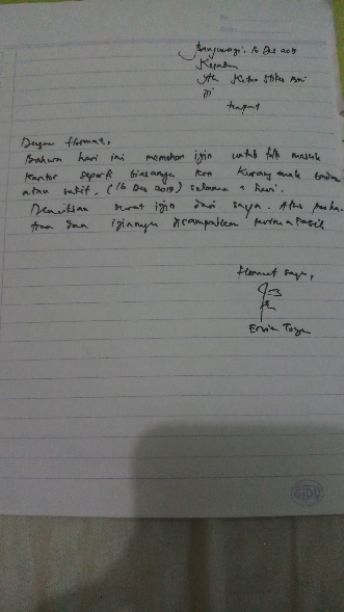 Banyuwangi, 16 Des 2019
Kepada
Yth Ketua Stikes Bwi
Di
tempat
Dengan Hormat,
Bahwa hari ini memohon izin untuk tdk masuk
kantor seperti biasanya krn kurang enak badan
atau sakit. (16 Des 2019) selama 1 hari.
Demikian surat izin dari saya. Atas perha-
tian dan izinnya disampaikan terima kasih
Hormat saya,
Ervin
SIDU